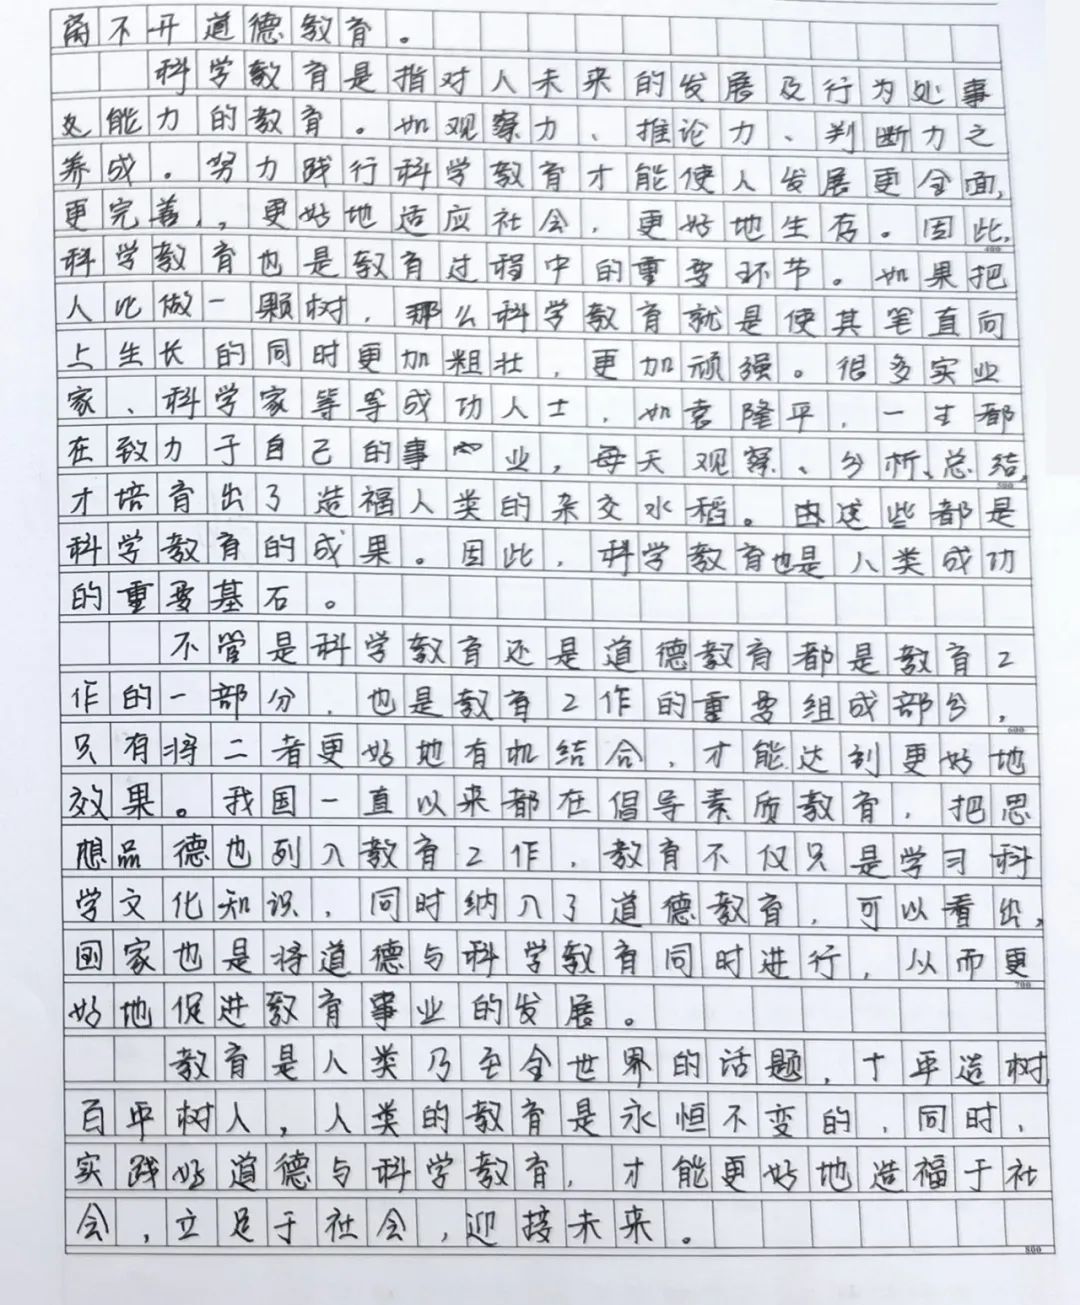 离不开道德教育。
科学教育是指对人未来的发展及行为处事
处能力的教育。如观察力、推论力、判断力之
养成。努力践行科学教育才能使人发展更全面,
更完善,,更好地适应社会,更好地生存。因此,
400
科学教育也是教育过程中的重要环节。如果把
人比做一颗树,那么科学教育就是使其笔直向
上生长的同时更加粗壮,更加顽强。很多实业
家、科学家等等成功人士,如袁隆平,一生都
在致力于自己的事业,每天观察、分析、总结,
500
才培育出了造福人类的杂交水稻。由这些都是
科学教育的成果。因此,科学教育也是人类成功
的重要基石。
不管是科学教育还是道德教育都是教育工
作的一部分,也是教育工作的重要组成部分,
600
只有将二者更好地有机结合,才能达到更好地
效果。我国一直以来都在倡导素质教育,把思
想品德也列入教育工作,教育不仅只是学习科
学文化知识,同时纳入了道德教育,可以看出,
国家也是将道德与科学教育同时进行,以而更
700
好地促进教育事业的发展。
教育是人类乃至全世界的话题,十年造树
百年树人,人类的教育是永恒不变的,同时,
实践好道德与科学教育,才能更好地造福于社
会,立足于社会,迎接未来。
800